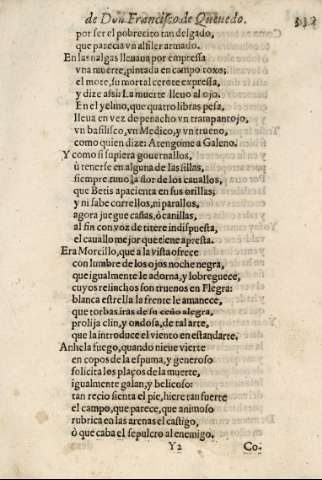 de Don Francisco de Queuedo.
por ser el pobrecito tan delgado,
que parecia vn alfiler armado.
En las nalgas lleuaua por empressa
vna muerte, pintada en campo roxo;
el mote, su mortal cerote expressa,
y dize assi: La muerte lleuo al ojo.
En el yelmo, que quatro libras pesa,
lleua en vez de penacho vn trampantojo,
vn basilisco, vn Medico, y vn trueno,
como quien dize: Atengome a Galeno.
Y como si supiera gouernallos,
ò tenerse en alguna de las sillas,
siempre tuuo la flor de los cauallos,
que Betis apacienta en sus orillas;
y ni sabe correllos, ni parallos,
agora juegue cañas, ò canillas,
al fin con voz de titere indispuesta,
el cauallo mejor que tiene apresta.
Era Morcillo, que a la vista ofrece
con lumbre de los ojos noche negra,
que igualmente le adorna, y lobreguece,
cuyos relinchos son truenos en Flegra:
blanca estrella la frente le amanece,
que torbas iras de su ceño alegra,
prolija clin, y ondosa, de tal arte,
que la introduce el viento en estandarte.
Anhela fuego, quando nieue vierte
en copos de la espuma, y generoso
solicita los plaços de la muerte,
igualmente galan, y belicoso:
tan recio sienta el pie, hiere tan fuerte
el campo, que parece, que animoso
rubrica en las arenas el castigo,
ò que caba el sepulcro al enemigo.
Y2 Co-